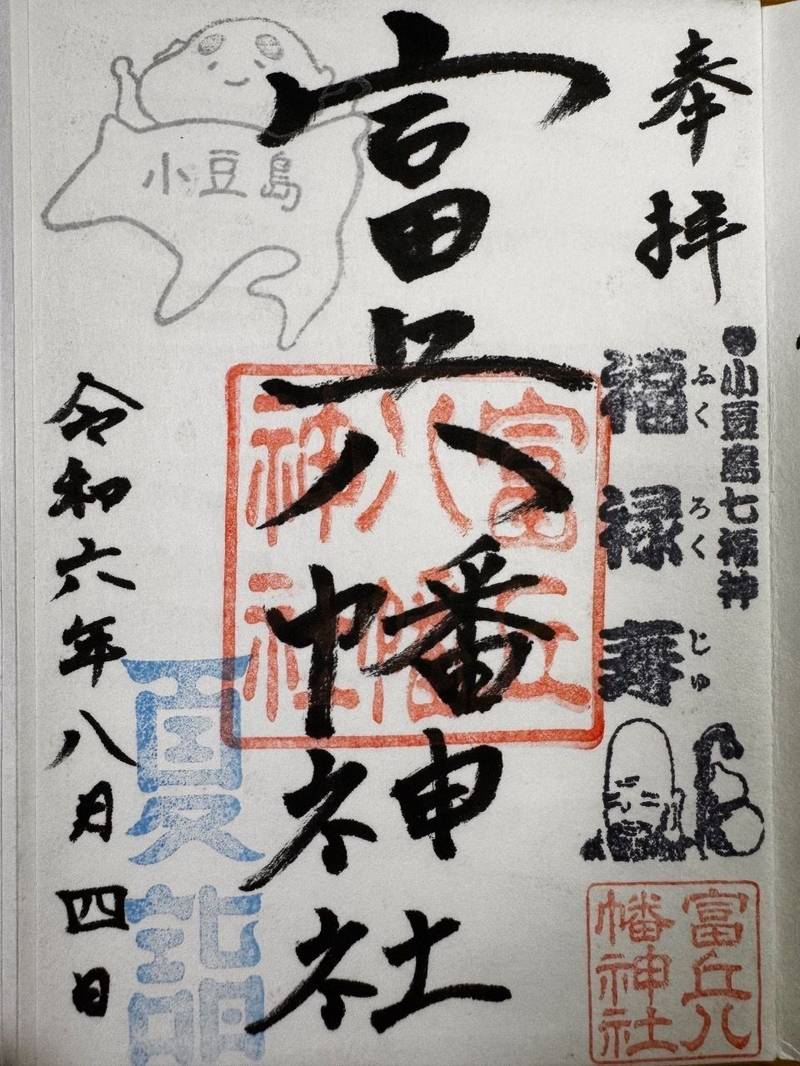 奉拝
●小豆島七福神
福禄寿
ふく
ろく
じゅ
富丘八幡神社
富丘
八幡
神社
富丘八
幡神社
小豆島
夏詣
令和六年八月四日